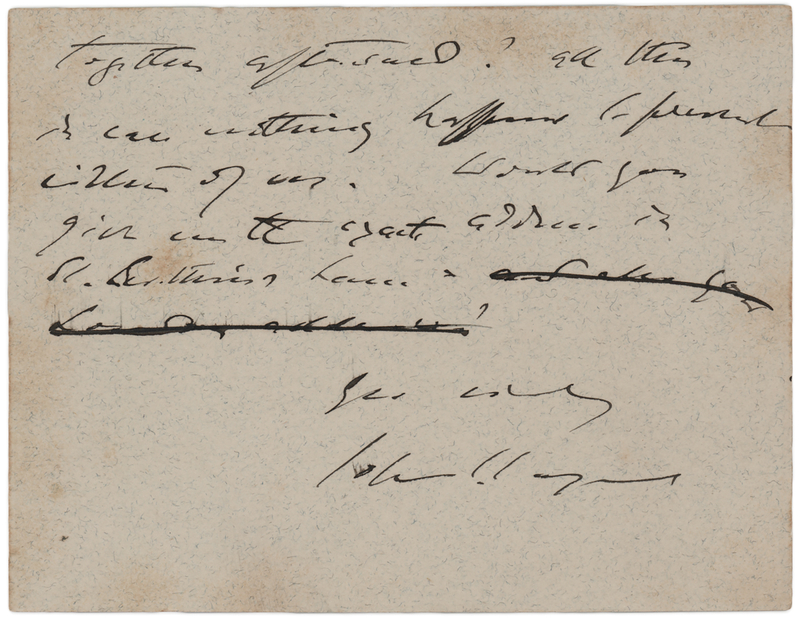 together afterward? all this
in case nothing happens to prevent
either of us. Would you
give me the exact address in
St. Martin's Lane
Yrs
John S. Sargent